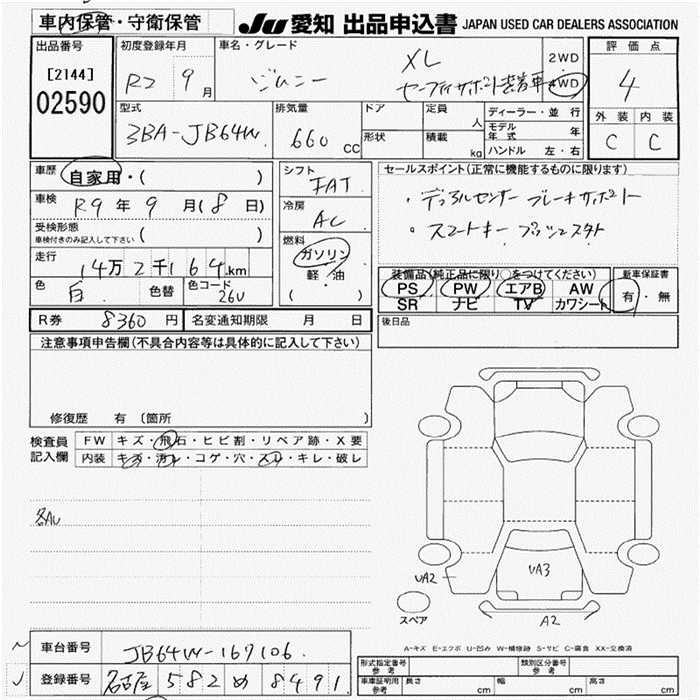 車内保管・守衛保管
JU 愛知 出品申込書 JAPAN USED CAR DEALERS ASSOCIATION
出品番号
[2144]
02590
初度登録年月
R2 9 月
車名・グレード
ジムニー
XL
セーフティサポート装着車
2WD
4WD
評価点
4
外装 内装
C C
型式
3BA-JB64W
排気量
660 cc
ドア
形状
定員 人
積載 kg
ディーラー・並行
モデル年式 年
ハンドル 左・右
車歴 自家用・( )
車検 R9 年 9 月 (8 日)
受検形態
車検付きのみ記入して下さい ( )
走行 14万 2千 1 64 km
色 白 色替 色コード 26U
シフト
FAT
冷房
AC
燃料
ガソリン
軽・油
( )
セールスポイント(正常に機能するものに限ります)
・デュアルセンサー ブレーキサポート
・スマートキー プッシュスタート
装備品(純正品に限り○をつけてください)
PS PW エアB AW
SR ナビ TV カワシート
新車保証書
有・無
R券 8360 円 名変通知期限 月 日
後日品
注意事項申告欄(不具合内容等は具体的に記入して下さい)
修復歴 有 (箇所 )
検査員
記入欄
FW キズ・飛石・ヒビ割・リペア跡・X要
内装 キズ・汚れ・コゲ・穴・スレ・キレ・破レ
各AU
UA2
UA3
A2
スペア
A-キズ E-エクボ U-凹み W-補修跡 S-サビ C-腐食 XX-交換済
車台番号 JB64W-167106
登録番号 名古屋 582 め 8491
型式指定番号
参考
類別区分番号
参考
車車証明用
参考
長さ cm 幅 cm 高さ cm